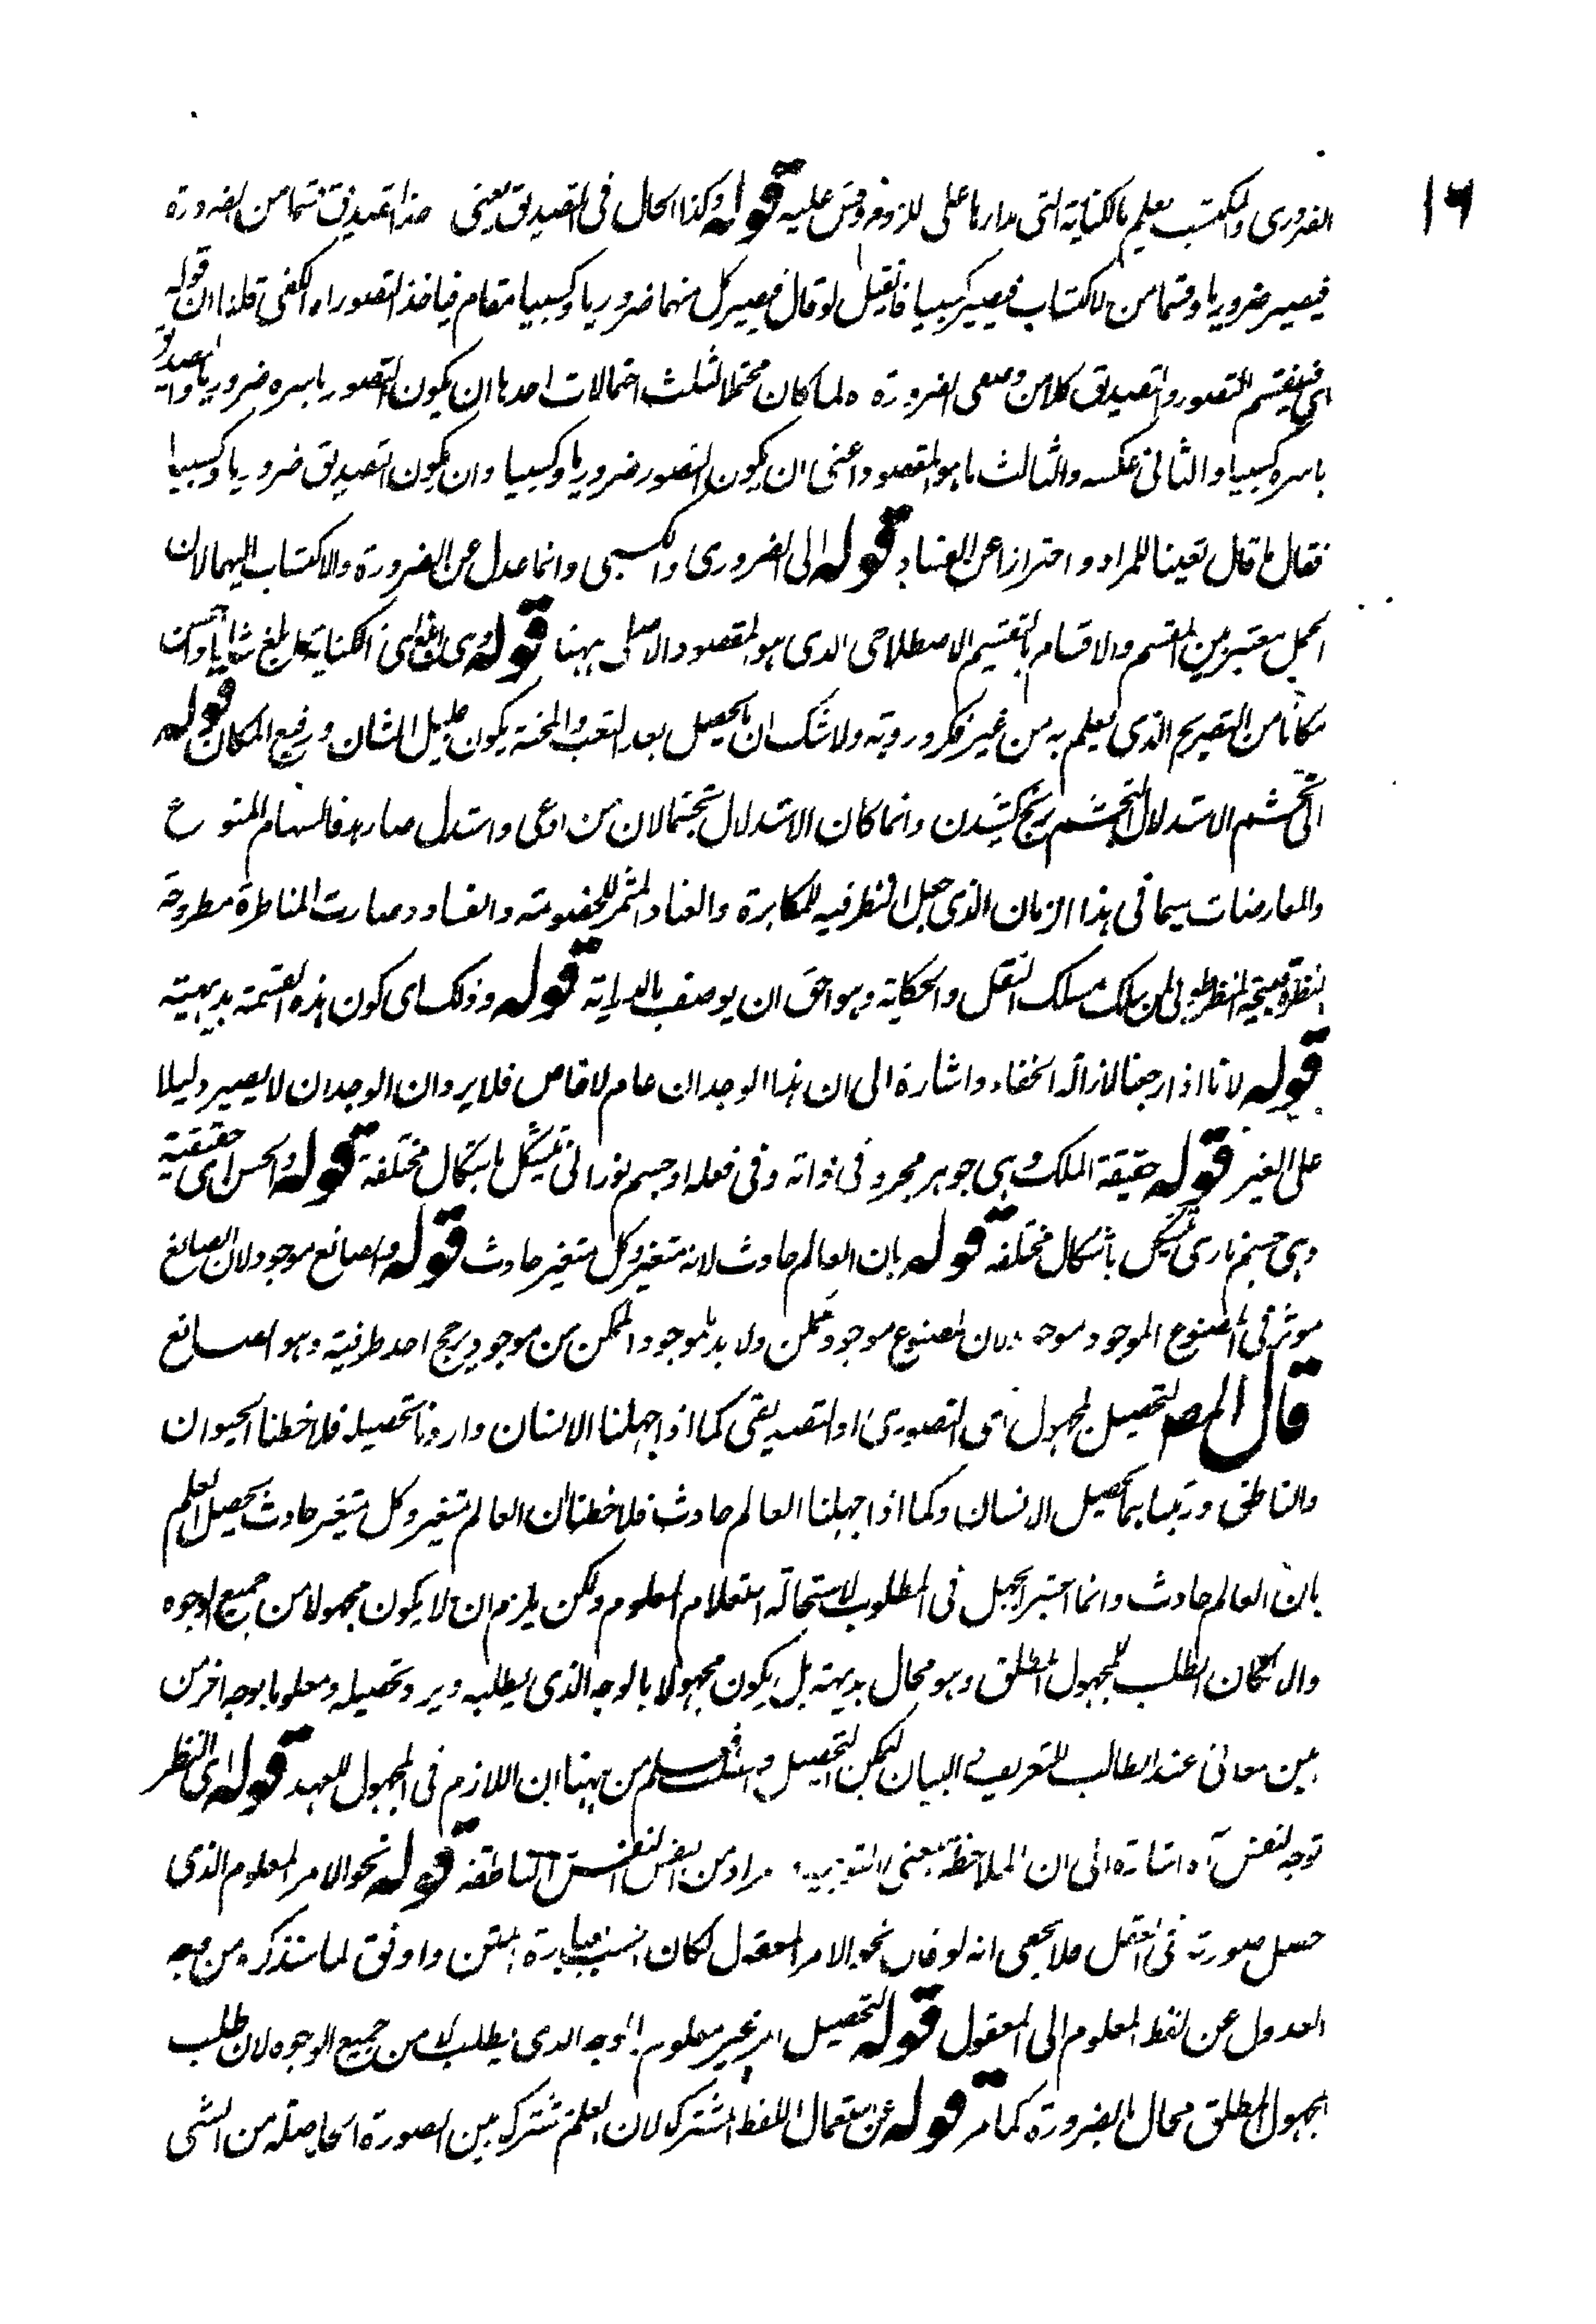 ۱۶
الضروری والمکتسب یعلم بالکنایة التی مدارها علی اللزوم وقس علیه قوله وکذا الحال فی التصدیق یعنی اخذ التصدیق قسما من الضرورة
فیصیر ضروریا وقسما من الاکتساب فیصیر کسبیا فانقیل لو قال فیصیر کل منهما ضروریا وکسبیا مقام فیاخذ التصور اه لکفی قلنا ان قوله
ای فینقسم التصور والتصدیق کلا من وصفی الضرورة اه لما کان محتملا لثلث احتمالات احدها ان یکون التصور باسره ضروریا والتصدیق
باسره کسبیا والثانی عکسه والثالث ما هو المقصود اعنی ان یکون التصور ضروریا وکسبیا وان یکون التصدیق ضروریا وکسبیا
فقال ما قال تعینا للمراد واحترازا عن الفساد قوله الی الضروری والکسبی وانما عدل عن الضرورة والاکتساب الیهما لان
الحمل معتبر بین المقسم والاقسام بالتقسیم الاصطلاحی الذی هو المقصود الاصلی ههنا قوله وهی ابلغ ای الکنایة ابلغ شانا واحسن
مکانا من التصریح الذی یعلم به من غیر فکر ورویة ولا شک ان ما یحصل بعد التعب والمحنة یکون جلیل الشان ورفیع المکان قوله
الی تجشم الاستدلال التجشم رنج کشیدن وانما کان الاستدلال تجشما لان من ادعی واستدل صار هدفا لسهام المنوع
والمعارضات سیما فی هذا الزمان الذی جعل النظر فیه للمکابرة والعناد المثمر للخصومة والفساد وصارت المناظرة مطروحة
النظرة قبیحة المنظر طوبی لمن سلک مسلک النقل والحکایة وهو احق ان یوصف بالهدایة قوله وذلک ای کون هذه القسمة بدیهیة
قوله لانا اذا رجعنا لازالة الخفاء واشارة الی ان هذا الوجدان عام لا خاص فلا یرد ان الوجدان لا یصیر دلیلا
علی الغیر قوله حقیقة الملک وهی جوهر مجرد فی ذاته وفی فعله او جسم نورانی یتشکل باشکال مختلفة قوله والجن ای حقیقته
وهی جسم ناری یتشکل باشکال مختلفة قوله بان العالم حادث لانه متغیر وکل متغیر حادث قوله والصانع موجود لان الصانع
موثر فی المصنوع الموجود موجود لان المصنوع موجود ممکن ولا بد لموجود الممکن من موجد یرجح احد طرفیه وهو الصانع
قال المص لتحصیل المجهول ای التصوری او التصدیقی کما اذا جهلنا الانسان واردنا تحصیله فلاحظنا الحیوان
والناطق ورتبناهما لتحصیل الانسان وکما اذا جهلنا العالم حادث فلاحظنا ان العالم متغیر وکل متغیر حادث لیحصل العلم
بان العالم حادث وانما اعتبر الجهل فی المطلوب لاستحالة استعلام المعلوم ولکن یلزم ان لا یکون مجهولا من جمیع الوجوه
والا لکان الطلب للمجهول المطلق وهو محال بدیهة بل یکون مجهولا بالوجه الذی یطلبه ویرد تحصیله ومعلوما بوجه اخر من
بین معانی عند الطالب للتعریف البیان لیمکن التحصیل من ههنا ان اللازم فی المجهول للعهد قوله ای النظر
توجه النفس آه اشارة الی ان الملاحظة بمعنی التوجه مراد من النفس النفس الناطقة قوله نحو الامر المعلوم الذی
حصل صورته فی العقل فلا یخفی انه لو قال نحو الامر المعقول لکان انسب بعبارة المتن واوفق لما سنذکره من وجه
العدول عن لفظ المعلوم الی المعقول قوله لتحصیل امر غیر معلوم بالوجه الذی یطلب لا من جمیع الوجوه لان طلب
المجهول المطلق محال بالضرورة کما مر قوله عن استعمال اللفظ المشترک لان العلم مشترک بین الصورة الحاصلة من الشی